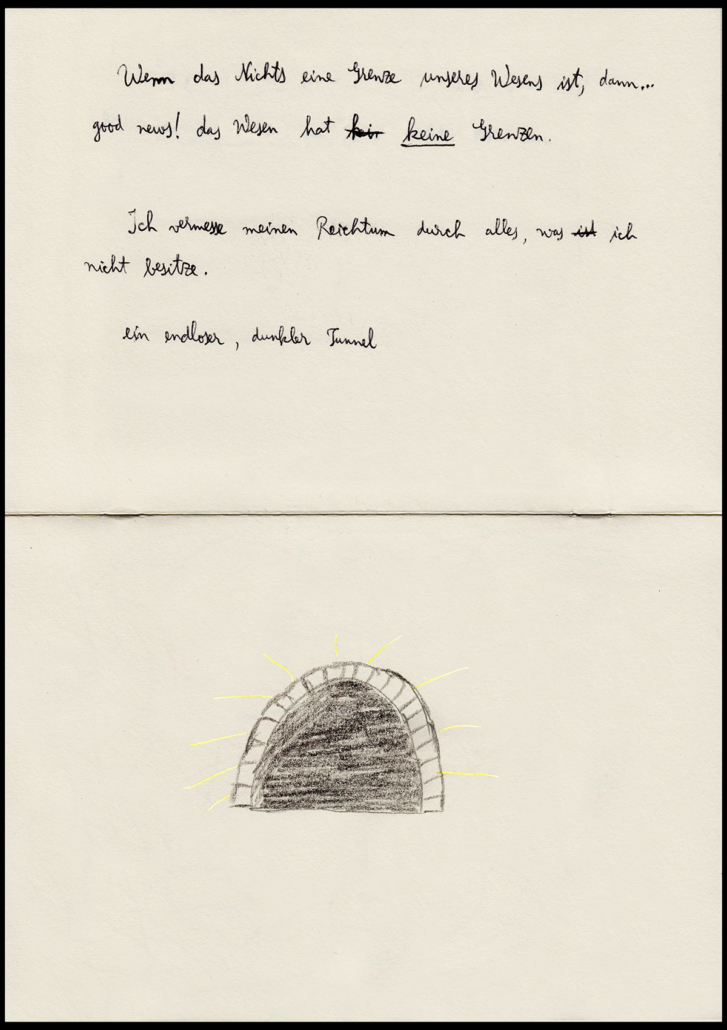 Wenn das Nichts eine Grenze unseres Wesens ist, dann...
good news! das Wesen hat kein keine Grenzen.
Ich vermesse meinen Reichtum durch alles, was ist ich
nicht besitze.
ein endloser, dunkler Tunnel